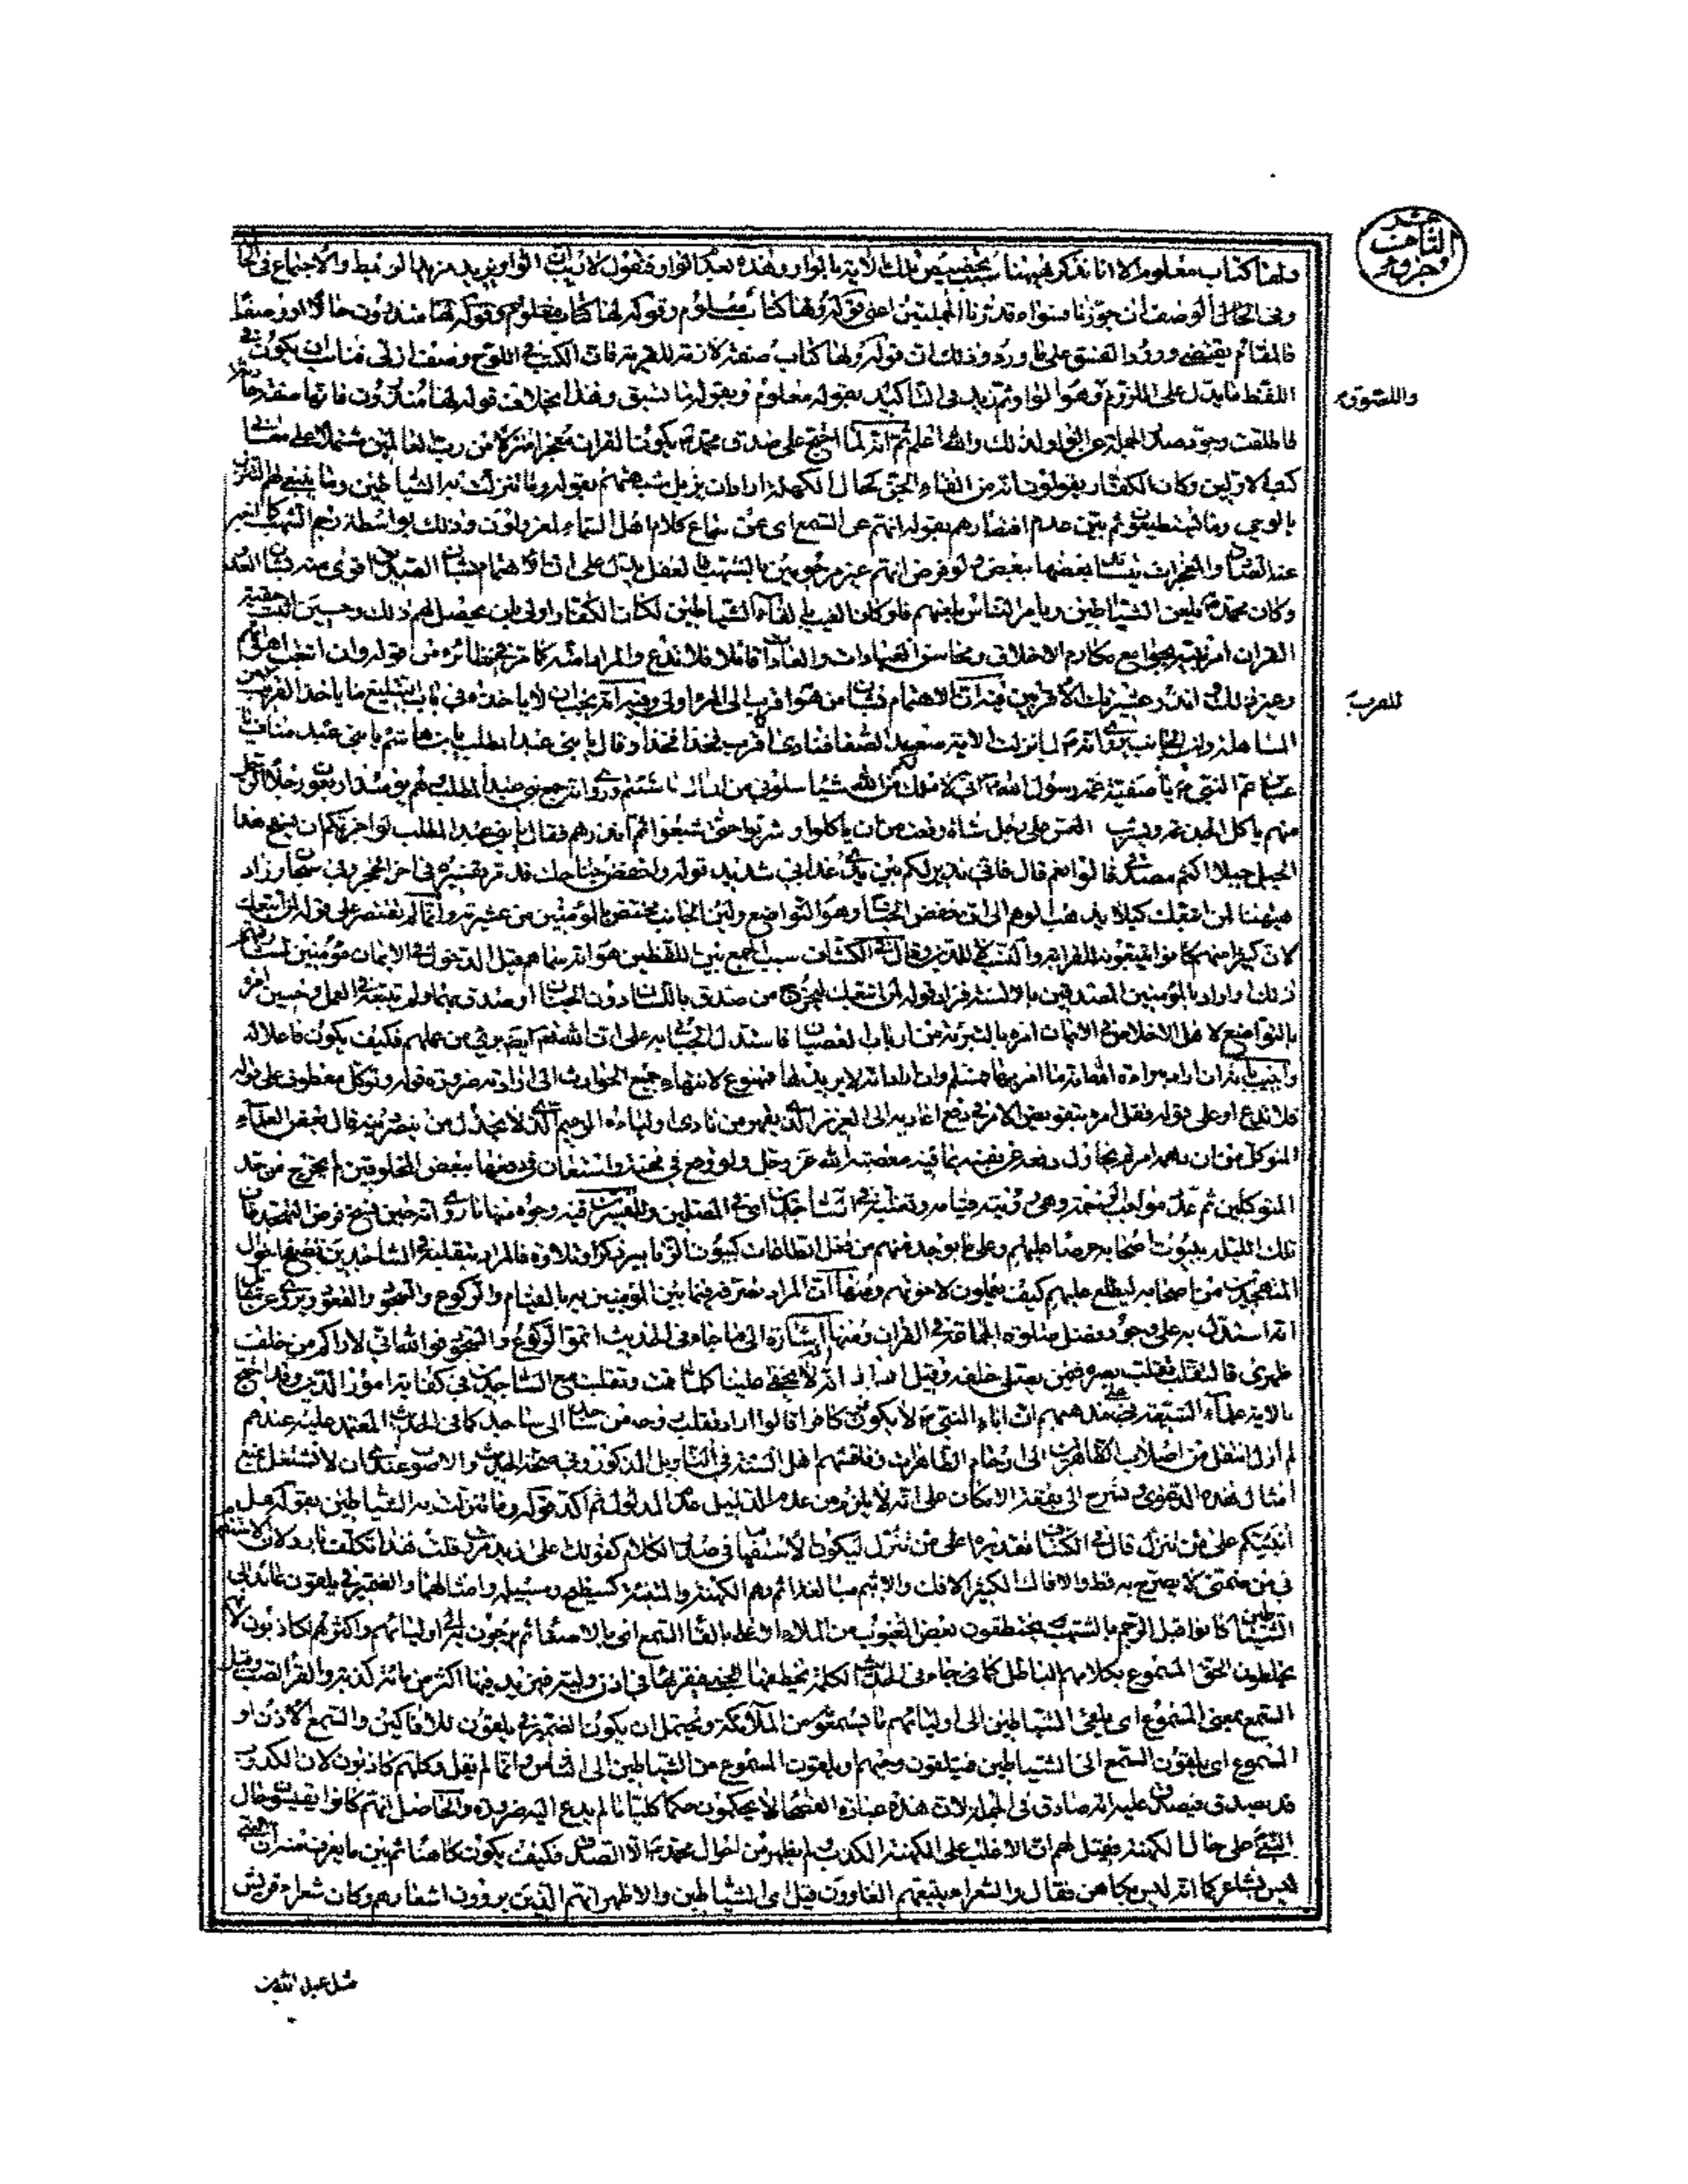 ولها كتاب معلوم الا انا نذكر ههنا سبب تخصيص تلك الاية بالواو وهذه بعدم الواو فنقول لا ريب ان الواو يزيد مزيد الربط والاجتماع في الحال
وفى الحال الوصف ان جوزنا سواء قدرنا الجملتين اعنى قوله ولها كتاب معلوم وقوله لها كتاب معلوم وقوله لها منذرون حالا او وصفا
فالمقام يقتضى ورود النسق على ما ورد وذلك ان قوله ولها كتاب صفة لازمة للقرية فان الكتب في اللوح وصف ازلى فناسب ان يكون في
اللفظ ما يدل على اللزوم وهو الواو ثم زيد فى التاكيد بقوله معلوم وبقوله ما تسبق وهذا بخلاف قوله لها منذرون فانها صفة حادثة
فاطلقت وجوه صدر الجملة عن الواو لذلك والله اعلم ثم انه لما احتج على صدق محمد بكون القران معجزا منزلا من رب العالمين مشتملا على معانى
كتب الاولين وكان الكفار يقولون انه من القاء الجن كحال الكهنة اراد ان يزيل شبهتهم بقوله وما تنزلت به الشياطين وما ينبغى لهم التنزل
بالوحى وما يستطيعون ثم بين عدم اقتدارهم بقوله انهم عن السمع اى عن سماع كلام اهل السماء لمعزولون وذلك بواسطة رجم الشهب كما اخبر
عنه الصادق والمعجزات يتساند بعضها ببعض ولو فرض انهم غير مرجومين بالشهب فالعقل يدل على ان الاهتمام بشان الصديق اقوى منه بشان العدو
وكان محمد يلعن الشياطين ويامر الناس بلعنهم فلو كان الغيب بالقاء الشياطين لكان الكفار اولى بان يحصل لهم ذلك وحين اثبت حقية
القران امر نبيه بجوامع مكارم الاخلاق ومحاسن العبادات والعادات قائلا فلا تدع والمراد امته كما مر في نظائره من قوله ولئن اتبعت اهواءهم
وغير ذلك وانذر عشيرتك الاقربين فيه ان الاهتمام بشان من هو اقرب الى المرء اولى وفيه انه يجب ان لا ياخذه في باب التبليغ ما ياخذ القريب من
المساهلة ولين الجانب يروى انه لما نزلت الاية صعد الصفا فنادى الاقرب فالاقرب فخذا فخذا وقال يا بنى عبد المطلب يا بنى هاشم يا بنى عبد مناف يا
عباس عم النبى يا صفية عمة رسول الله انى لا املك لكم من الله شيئا سلونى من المال ما شئتم وروى انه جمع بنى عبد المطلب وهم يومئذ اربعون رجلا الرجل
منهم ياكل الجذعة ويشرب العس على رجل شاة وقعب من لبن فاكلوا وشربوا حتى شبعوا ثم انذرهم فقال يا بنى عبد المطلب لو اخبرتكم ان بسفح هذا
الجبل خيلا اكنتم مصدقى قالوا نعم قال فانى نذير لكم بين يدى عذاب شديد قوله واخفض جناحك قد مر تفسيره فى اخر الحجر وفى سبحان وزاد
ههنا لمن اتبعك كيلا يذهب الوهم الى ان خفض الجناح وهو التواضع ولين الجانب مختص بالمؤمنين من عشيرته وانما لم يقتصر على قوله لمن اتبعك
لان كثيرا منهم كانوا يتبعونه للقرابة والنسب لا للدين وقال في الكشاف سبب الجمع بين اللفظين هو انه سماهم قبل الدخول في الايمان مؤمنين لمشارفتهم
ذلك او اراد بالمؤمنين المصدقين بالالسنة فزاد قوله لمن اتبعك ليخرج من صدق باللسان دون الجنان او صدق بهما ولم يتبعه في العمل وحين امره
بالتواضع لاهل الاخلاص في الايمان امره بالتبرئة من ارباب العصيان فاستدل الجبائى به على ان الله تعالى ايضا برئ من عملهم فكيف يكون فاعلا له
واجيب بانه ان اراد ببراءة الله انه ما امر بها فمسلم وان اراد انه لا يريدها فممنوع لانتهاء جميع الحوادث الى ارادته ضرورة قوله وتوكل معطوف على قوله
فلا تدع او على قوله فقل امره بتفويض الامر في دفع اعاديه الى العزيز الذى يقهر من ناوى اولياءه الرحيم الذى لا يخذل من ينصر دينه قال بعض العلماء
المتوكل من ان دهمه امر لم يحاول دفعه عن نفسه بما فيه معصية الله عز وجل ولو وقع فى محنة واستعان فى دفعها ببعض المخلوقين لم يخرج من حد
المتوكلين ثم عدد مواجب الرحمة وهى رؤيته قيامه وتقلبه في الساجدين اى في المصلين وللمفسرين فيه وجوه منها ما روى انه حين نسخ فرض التهجد طاف
تلك الليلة ببيوت اصحابه حرصا عليهم وعلى ما يوجد منهم من فعل الطاعات كبيوت الزنابير ذكرا وتلاوة فالمراد بتقلبه في الساجدين تصفح احوال
المتهجدين من اصحابه ليطلع عليهم كيف يعملون لاخرتهم ومنها ان المراد تصرفه فيما بين المؤمنين به بالقيام والركوع والسجود والقعود يروى عن مقاتل
انه استدل به على وجود فضل صلوة الجماعة في القران ومنها انه اشارة الى ما جاء فى الحديث اتموا الركوع والسجود فوالله انى لاراكم من خلف
ظهرى فالتقلب تقلب بصره فيمن يصلى خلفه وقيل اراد انه لا يخفى علينا كلما قمت وتقلبت مع الساجدين فى كفاية امور الدين وقد احتج
بالاية علماء الشيعة على مذهبهم ان اباء النبى لا يكونون كفارا قالوا اراد تقلب روحه من ساجد الى ساجد كما فى الحديث المعتمد عليه عندهم
لم ازل انتقل من اصلاب الطاهرين الى ارحام الطاهرات وناقشهم اهل السنة فى التاويل المذكور وفى صحة الحديث والاصوب عندى ان لا نشتغل بمنع
امثال هذه الدعوى ونسرح الى بقعة الامكان على انه لا يلزم من عدم الدليل عدم المدلول ثم اكد قوله وما تنزلت به الشياطين بقوله هل
انبئكم على من تنزل قال في الكشاف تقديره اعلى من تنزل ليكون الاستفهام فى صدر الكلام كقولك على زيد مررت قلت هذا تكلف بارد لان الاستفهام
فى من ضمنى لا يصرح به قط والافاك الكثير الافك والاثيم مبالغة اثم وهم الكهنة والمتنبئة كسطيح ومسيلمة وامثالهما والضمير في يلقون عائد الى
الشياطين كانوا قبل الرجم بالشهب يختطفون بعض الغيوب من الملا الاعلى بالقاء السمع اى بالاصغاء ثم يرجعون به الى اوليائهم واكثرهم كاذبون لانهم
يخلطون الحق المسموع بكلامهم الباطل كما جاء فى الحديث الكلمة يخطفها الجنى فيقرها فى اذن وليه فيزيد فيها اكثر من مائة كذبة والقر الصب وقيل
السمع بمعنى المسموع اى يلقى الشياطين الى اوليائهم ما يسمعونه من الملائكة ويحتمل ان يكون الضمير في يلقون للافاكين والسمع الاذن او
المسموع اى يلقون السمع الى الشياطين فيتلقون وحيهم او يلقون المسموع من الشياطين الى الناس وانما لم يقل وكلهم كاذبون لان الكذوب
قد يصدق فيصدق عليه انه صادق فى الجملة ولان هذه عبارة الفصحاء لا يحكمون حكما كليا ما لم يدع اليه ضرورة والحاصل انهم كانوا يقيسون حال
النبى على حال الكهنة فقيل لهم ان الاغلب على الكهنة الكذب ولم يظهر من احوال محمد الا الصدق فكيف يكون كاهنا ثم بين ما يعرف منه ان النبى
ليس بشاعر كما انه ليس بكاهن فقال والشعراء يتبعهم الغاوون قيل اى الشياطين والاظهر انهم الذين يروون اشعارهم وكان شعراء قريش
مثل عبد الله بن